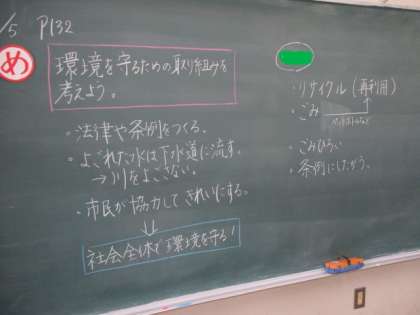 /5 P132
め
環境を守るための取り組みを
考えよう。
・法律や条例をつくる.
・よごれた水は下水道に流す.
→川をよごさない。
・市民が協力してきれいにする。
↓
社会全体で環境を守る!
・リサイクル(再利用)
・ごみ
ペットボトルなど
・ごみひろい
・条例にしたがう。